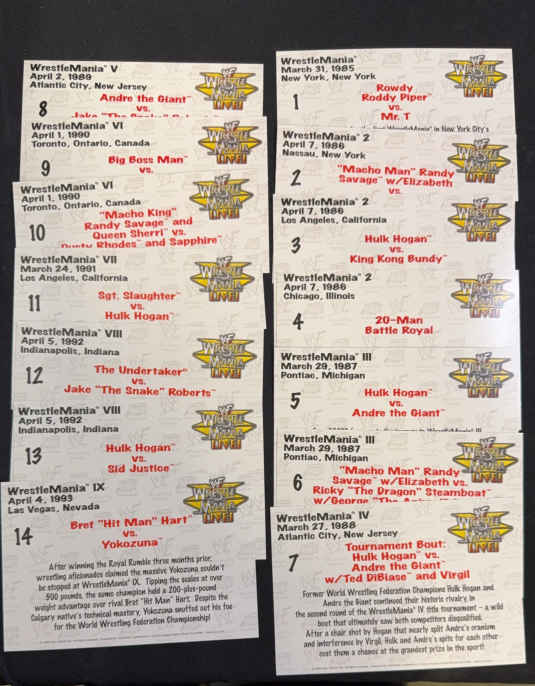 WrestleMania™ V
April 2, 1989
Atlantic City, New Jersey
8
Andre the Giant™
vs.
WF
WRESTLE
MANIA
LIVE!
WrestleMania™ VI
April 1, 1990
Toronto, Ontario, Canada
9
Big Boss Man™
vs.
WF
WRESTLE
MANIA
LIVE!
WrestleMania™ VI
April 1, 1990
Toronto, Ontario, Canada
10
"Macho King"
Randy Savage™ and
Queen Sherri™ vs.
Dusty Rhodes™ and Sapphire™
WF
WRESTLE
MANIA
LIVE!
WrestleMania™ VII
March 24, 1991
Los Angeles, California
11
Sgt. Slaughter™
vs.
Hulk Hogan™
WF
WRESTLE
MANIA
LIVE!
WrestleMania™ VIII
April 5, 1992
Indianapolis, Indiana
12
The Undertaker™
vs.
Jake "The Snake" Roberts™
WF
WRESTLE
MANIA
LIVE!
WrestleMania™ VIII
April 5, 1992
Indianapolis, Indiana
13
Hulk Hogan™
vs.
Sid Justice™
WF
WRESTLE
MANIA
LIVE!
WrestleMania™ IX
April 4, 1993
Las Vegas, Nevada
14
Bret "Hit Man" Hart™
vs.
Yokozuna™
WF
WRESTLE
MANIA
LIVE!
After winning the Royal Rumble three months prior,
wrestling aficionados claimed the massive Yokozuna couldn't
be stopped at WrestleMania™ IX. Tipping the scales at over
500 pounds, the sumo champion held a 200-plus-pound
weight advantage over rival Bret "Hit Man" Hart. Despite the
Calgary native's technical mastery, Yokozuna snuffed out his foe
for the World Wrestling Federation Championship!
WrestleMania™
March 31, 1985
New York, New York
1
Rowdy
Roddy Piper™
vs.
Mr. T
WrestleMania™ in New York City's
WF
WRESTLE
MANIA
LIVE!
WrestleMania™ 2
April 7, 1986
Nassau, New York
2
"Macho Man" Randy
Savage™ w/Elizabeth
vs.
WF
WRESTLE
MANIA
LIVE!
WrestleMania™ 2
April 7, 1986
Los Angeles, California
3
Hulk Hogan™
vs.
King Kong Bundy™
WF
WRESTLE
MANIA
LIVE!
WrestleMania™ 2
April 7, 1986
Chicago, Illinois
4
20-Man
Battle Royal
WF
WRESTLE
MANIA
LIVE!
WrestleMania™ III
March 29, 1987
Pontiac, Michigan
5
Hulk Hogan™
vs.
Andre the Giant™
WF
WRESTLE
MANIA
LIVE!
WrestleMania™ III
March 29, 1987
Pontiac, Michigan
6
"Macho Man" Randy
Savage™ w/Elizabeth vs.
Ricky "The Dragon" Steamboat™
w/George "The
WF
WRESTLE
MANIA
LIVE!
WrestleMania™ IV
March 27, 1988
Atlantic City, New Jersey
7
Tournament Bout:
Hulk Hogan™ vs.
Andre the Giant™
w/Ted DiBiase™ and Virgil
WF
WRESTLE
MANIA
LIVE!
Former World Wrestling Federation Champions Hulk Hogan and
Andre the Giant continued their historic rivalry, in
the second round of the WrestleMania™ IV title tournament – a wild
bout that ultimately saw both competitors disqualified.
After a chair shot by Hogan that nearly split Andre's cranium
and interference by Virgil, Hulk and Andre's spite for each other
cost them a chance at the grandest prize in the sport!